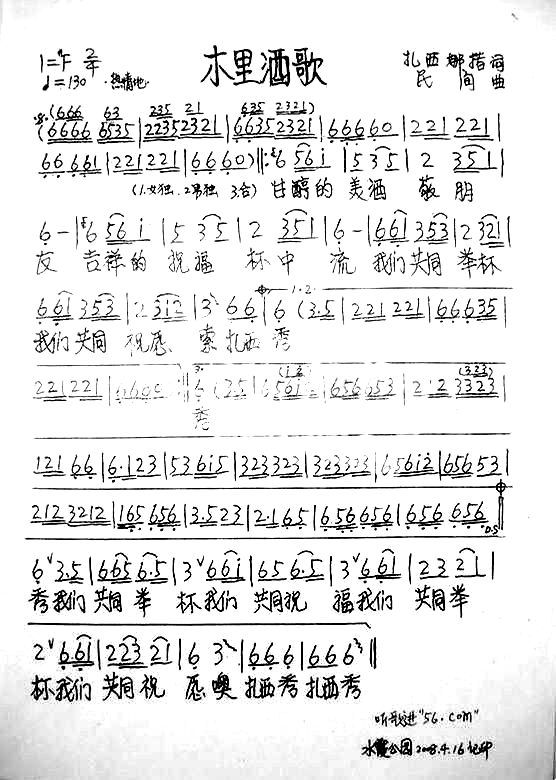 木里酒歌
1=♭下 2/4
♩=130 ·热情地·
扎西娜措 词
民间 曲
(666 63 235 21 635 2321)
(6666 6535|2235 2321|6635 2321|66660|221 221|
66 661|221 221|6660):6 561|535|2 351|
(1.女独.2男独 3.合) 甘醇的 美酒 敬 朋
6-|6 561|535|2 351|6-|661 353|2 321|
友 吉祥的 祝福 杯中 流 我们共同 举杯
661 353|2 312|3 66|6 (3.5|221 221|66635|
1.2.
我们共同 祝愿 索扎西秀
221221|6660:|6 (3.5|6561|656653|212 3323|
3. (12) (323)
秀
121 66|6.123|53 615|323323|323323|65612|656 53|
212 3212|165 656|3.523|2.165|656 656|656 656|
D.S
6 3.5|665 6.5|3 661|65 6.5|3 661|23 21|
秀我们 共同 举 杯我们 共同祝 福我们 共同举
2 6.61|223 21|6 3|666|666||
杯我们 共同祝 愿噢 扎西秀扎西秀
听歌进"56.com"
水霞公园2008.4.16记印